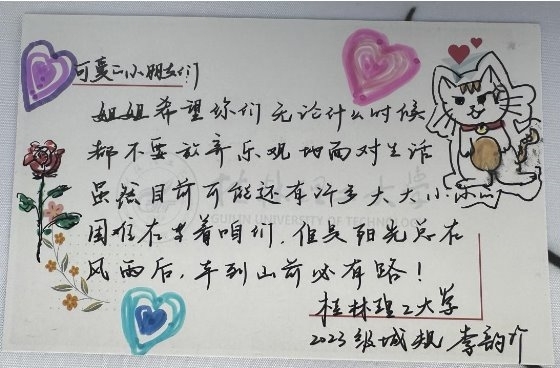 可爱的小朋友们
姐姐希望你们无论什么时候
都不要放弃乐观地面对生活
虽然目前可能还有许多大大小小的
困难在等着咱们，但是阳光总在
风雨后，车到山前必有路！
桂林理工大学
2023级城规 李韵
GUILIN UNIVERSITY OF TECHNOLOGY